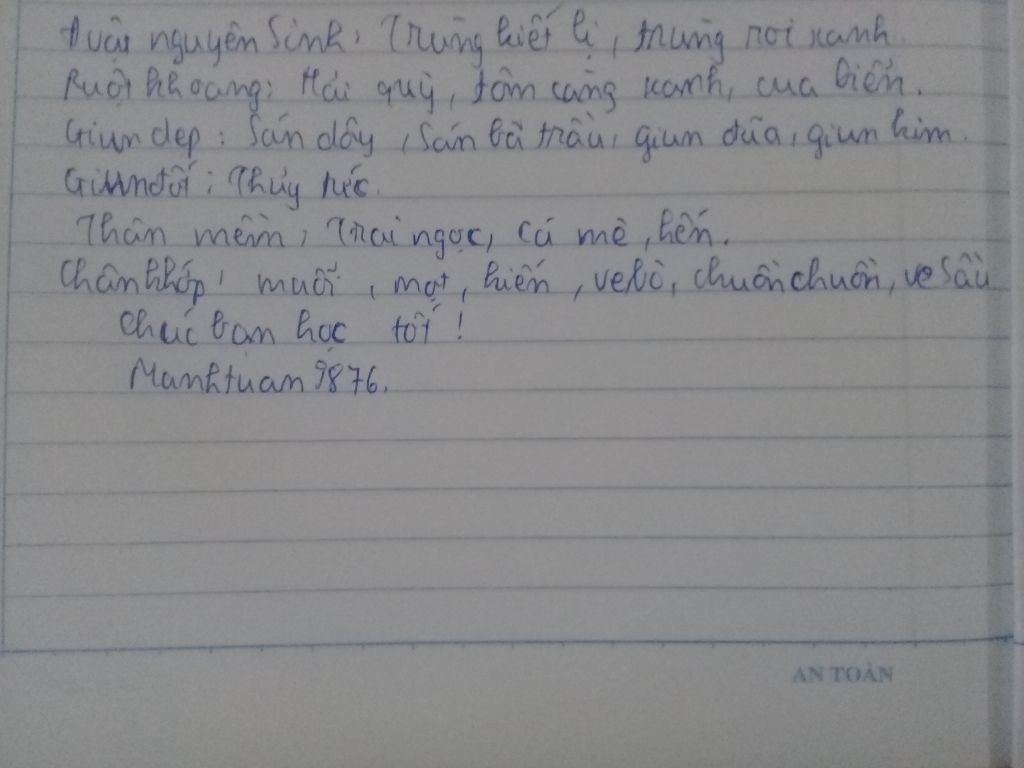 Động vật nguyên sinh: Trùng kiết lị, trùng roi xanh
Ruột khoang: Hải quỳ, tôm càng xanh, cua biển.
Giun dẹp: Sán dây, Sán bã trầu, giun đũa, giun kim.
Giun đốt: Thủy tức.
Thân mềm: Trai ngọc, cá mè, hến.
Chân khớp: muỗi, mọt, kiến, ve bò, chuồn chuồn, ve Sầu
Chúc bạn học tốt!
Manhtuan 9876.
AN TOÀN